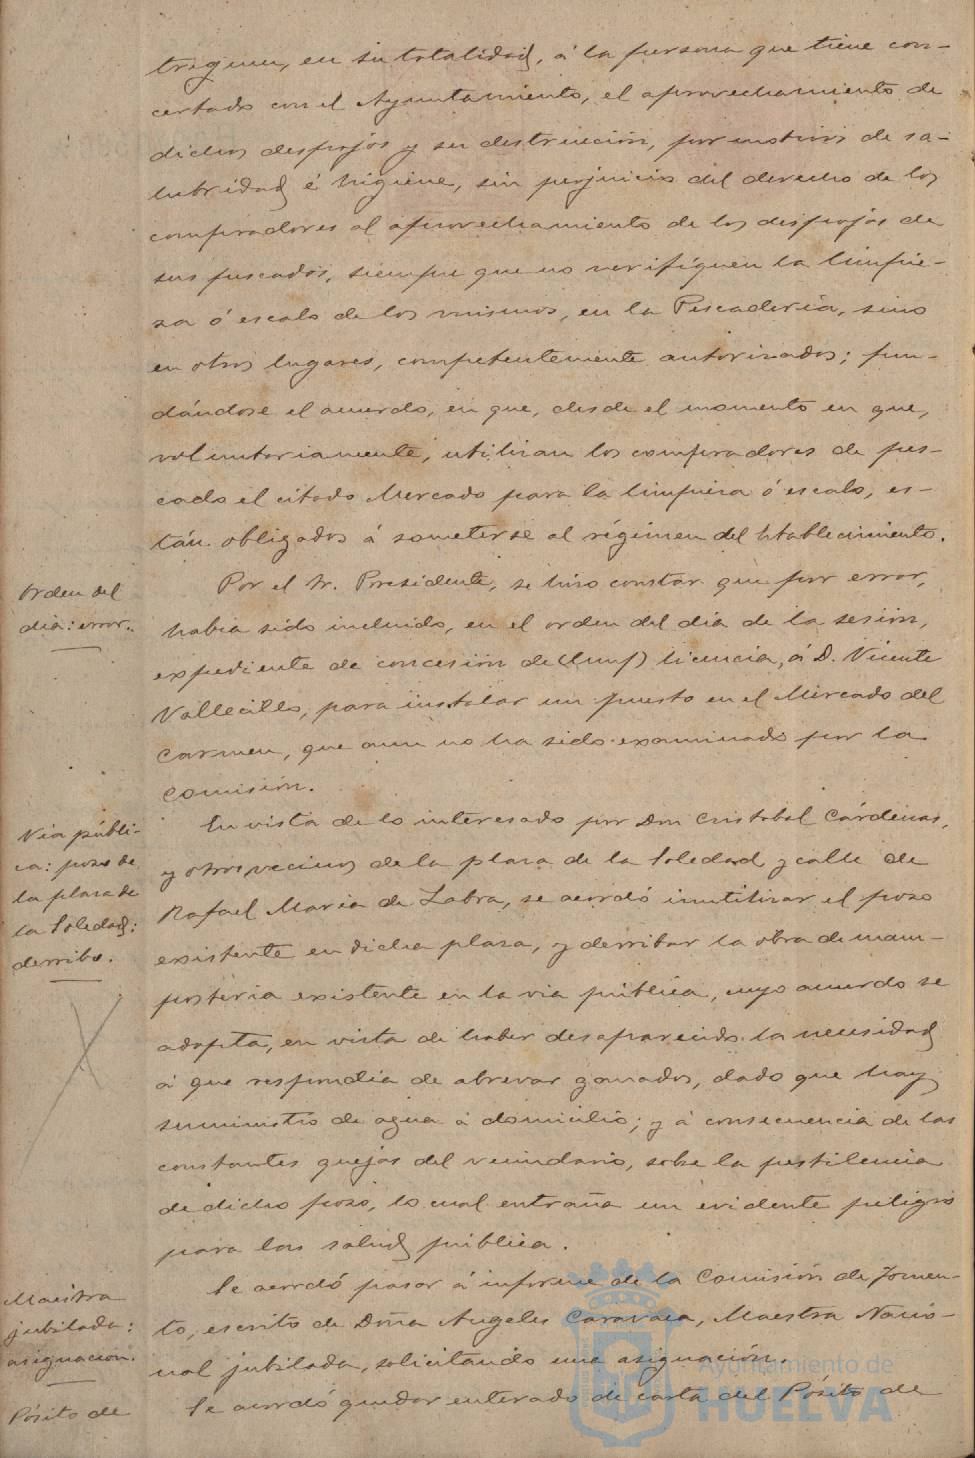 treguen, en su totalidad, á la persona que tiene con-
certado con el Ayuntamiento, el aprovechamiento de
dichos despojos y su destrucción, por motivos de sa-
lubridad é higiene, sin perjuicio del derecho de los
compradores al aprovechamiento de los despojos de
sus pescados, siempre que no verifiquen la limpie-
za ó escalo de los mismos, en la Pescadería, sino
en otros lugares, competentemente autorizados; fun-
dándose el acuerdo, en que, desde el momento en que,
voluntariamente, utilizan los compradores de pes-
cado el citado Mercado para la limpieza ó escalo, es-
tán obligados á someterse al régimen del Establecimiento.
Orden del
día: error.
Por el Sr. Presidente, se hizo constar que por error,
había sido incluido, en el orden del día de la sesión,
expediente de concesión de licencia, á D. Vicente
Vallecillo, para instalar un puesto en el Mercado del
Carmen, que aun no ha sido examinado por la
Comisión.
Vía públi-
ca: pozo de
la plaza de
la Soledad:
derribo.
En vista de lo interesado por Don Cristobal Cárdenas,
y otros vecinos de la plaza de la Soledad y calle de
Rafael María de Labra, se acordó inutilizar el pozo
existente en dicha plaza, y derribar la obra de mam-
postería existente en la vía pública, cuyo acuerdo se
adopta, en vista de haber desaparecido la necesidad
á que respondía de abrevar ganados, dado que hay
suministro de agua á domicilio; y á consecuencia de las
constantes quejas del vecindario, sobre la pestilencia
de dicho pozo, lo cual entraña un evidente peligro
para la salud pública.
Maestra
jubilada:
asignación.
Se acordó pasar á informe de la Comisión de Fomen-
to, escrito de Doña Angeles Caravaca, Maestra Nacio-
nal jubilada, solicitando una asignación.
Pósito de
Se acordó quedar enterado de carta del Pósito de
Ayuntamiento de
HUELVA